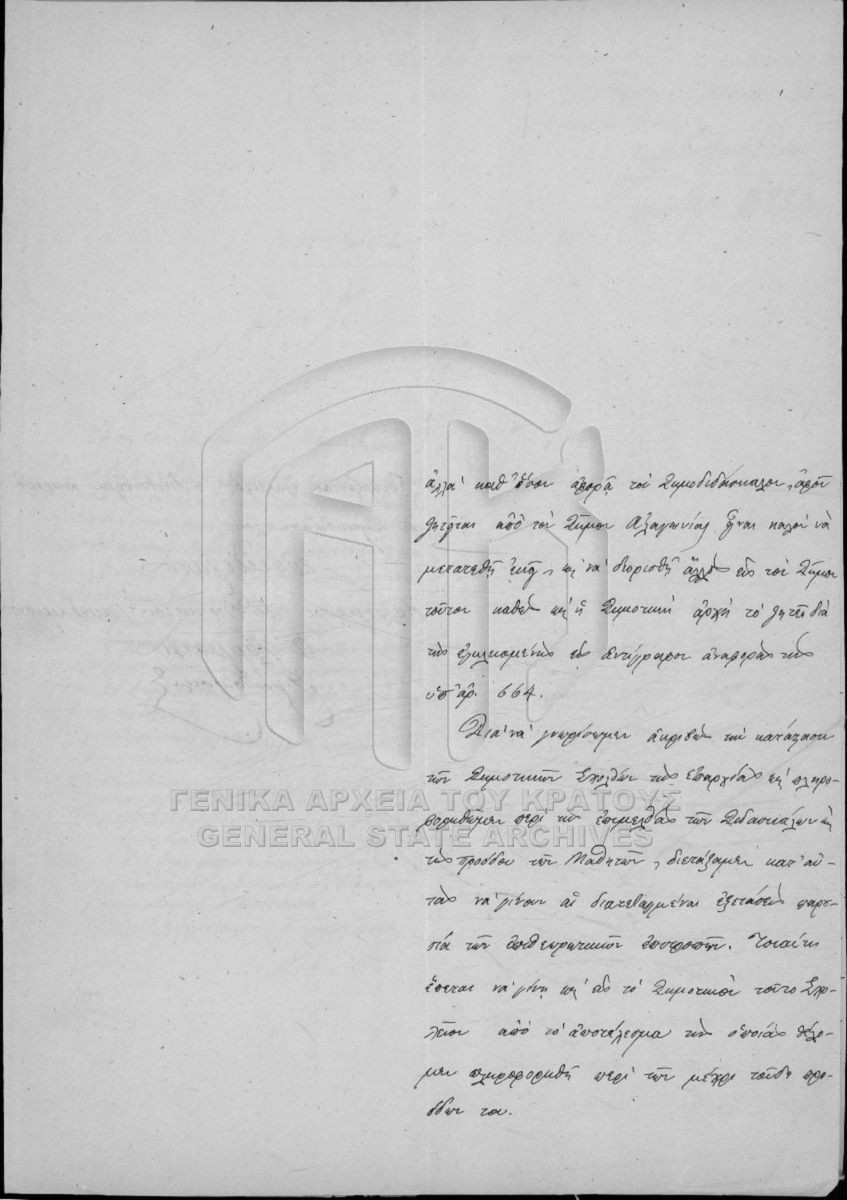 ἀλλὰ καθ' ὅσον ἀφορᾷ τὸν Δημοδιδάσκαλον, ἀφοῦ
ζητῆται ἀπὸ τὸν Δῆμον Ἀλαγωνίας εἶναι καλὸν νὰ
μετατεθῇ ἐκεῖ, καὶ νὰ διορισθῇ ἄλλος εἰς τὸν Δῆμον
τοῦτον καθὼς καὶ ἡ Δημοτικὴ ἀρχὴ τὸ ζητεῖ διὰ
τῆς ἐγκλεισμένης εἰς ἀντίγραφον ἀναφορᾶς της
ὑπ' ἀρ. 664.
Διὰ νὰ γνωρίσωμεν ἀκριβῶς τὴν κατάστασιν
τῶν Δημοτικῶν Σχολείων τῆς ἐπαρχίας καὶ πληρο-
φορηθῶμεν περὶ τῆς ἐπιμελείας τῶν Διδασκάλων καὶ
τῆς προόδου τῶν Μαθητῶν, διετάξαμεν κατ' αὐ-
τὰς νὰ γίνουν αἱ διατεταγμέναι ἐξετάσεις παρου-
σίᾳ τῶν ἐπιθεωρητικῶν ἐπιτροπῶν. Τοιαύτη
ἕπεται νὰ γίνῃ καὶ εἰς τὸ Δημοτικὸν τοῦτο Σχο-
λεῖον ἀπὸ τὸ ἀποτέλεσμα τῆς ὁποίας θέλο-
μεν πληροφορηθῆ περὶ τῶν μέχρι τοῦδε προ-
όδων του.
ΓΕΝΙΚΑ ΑΡΧΕΙΑ ΤΟΥ ΚΡΑΤΟΥΣ
GENERAL STATE ARCHIVES